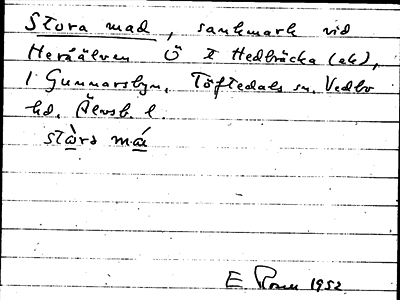 Stora mad, sankmark vid
Heråälven Ö I Hedbräcka (ak),
1 Gunnarsbyn. Töftedals sn. Vedbo
hd. Älvsb. l.
stòra má
E Rosen 1952